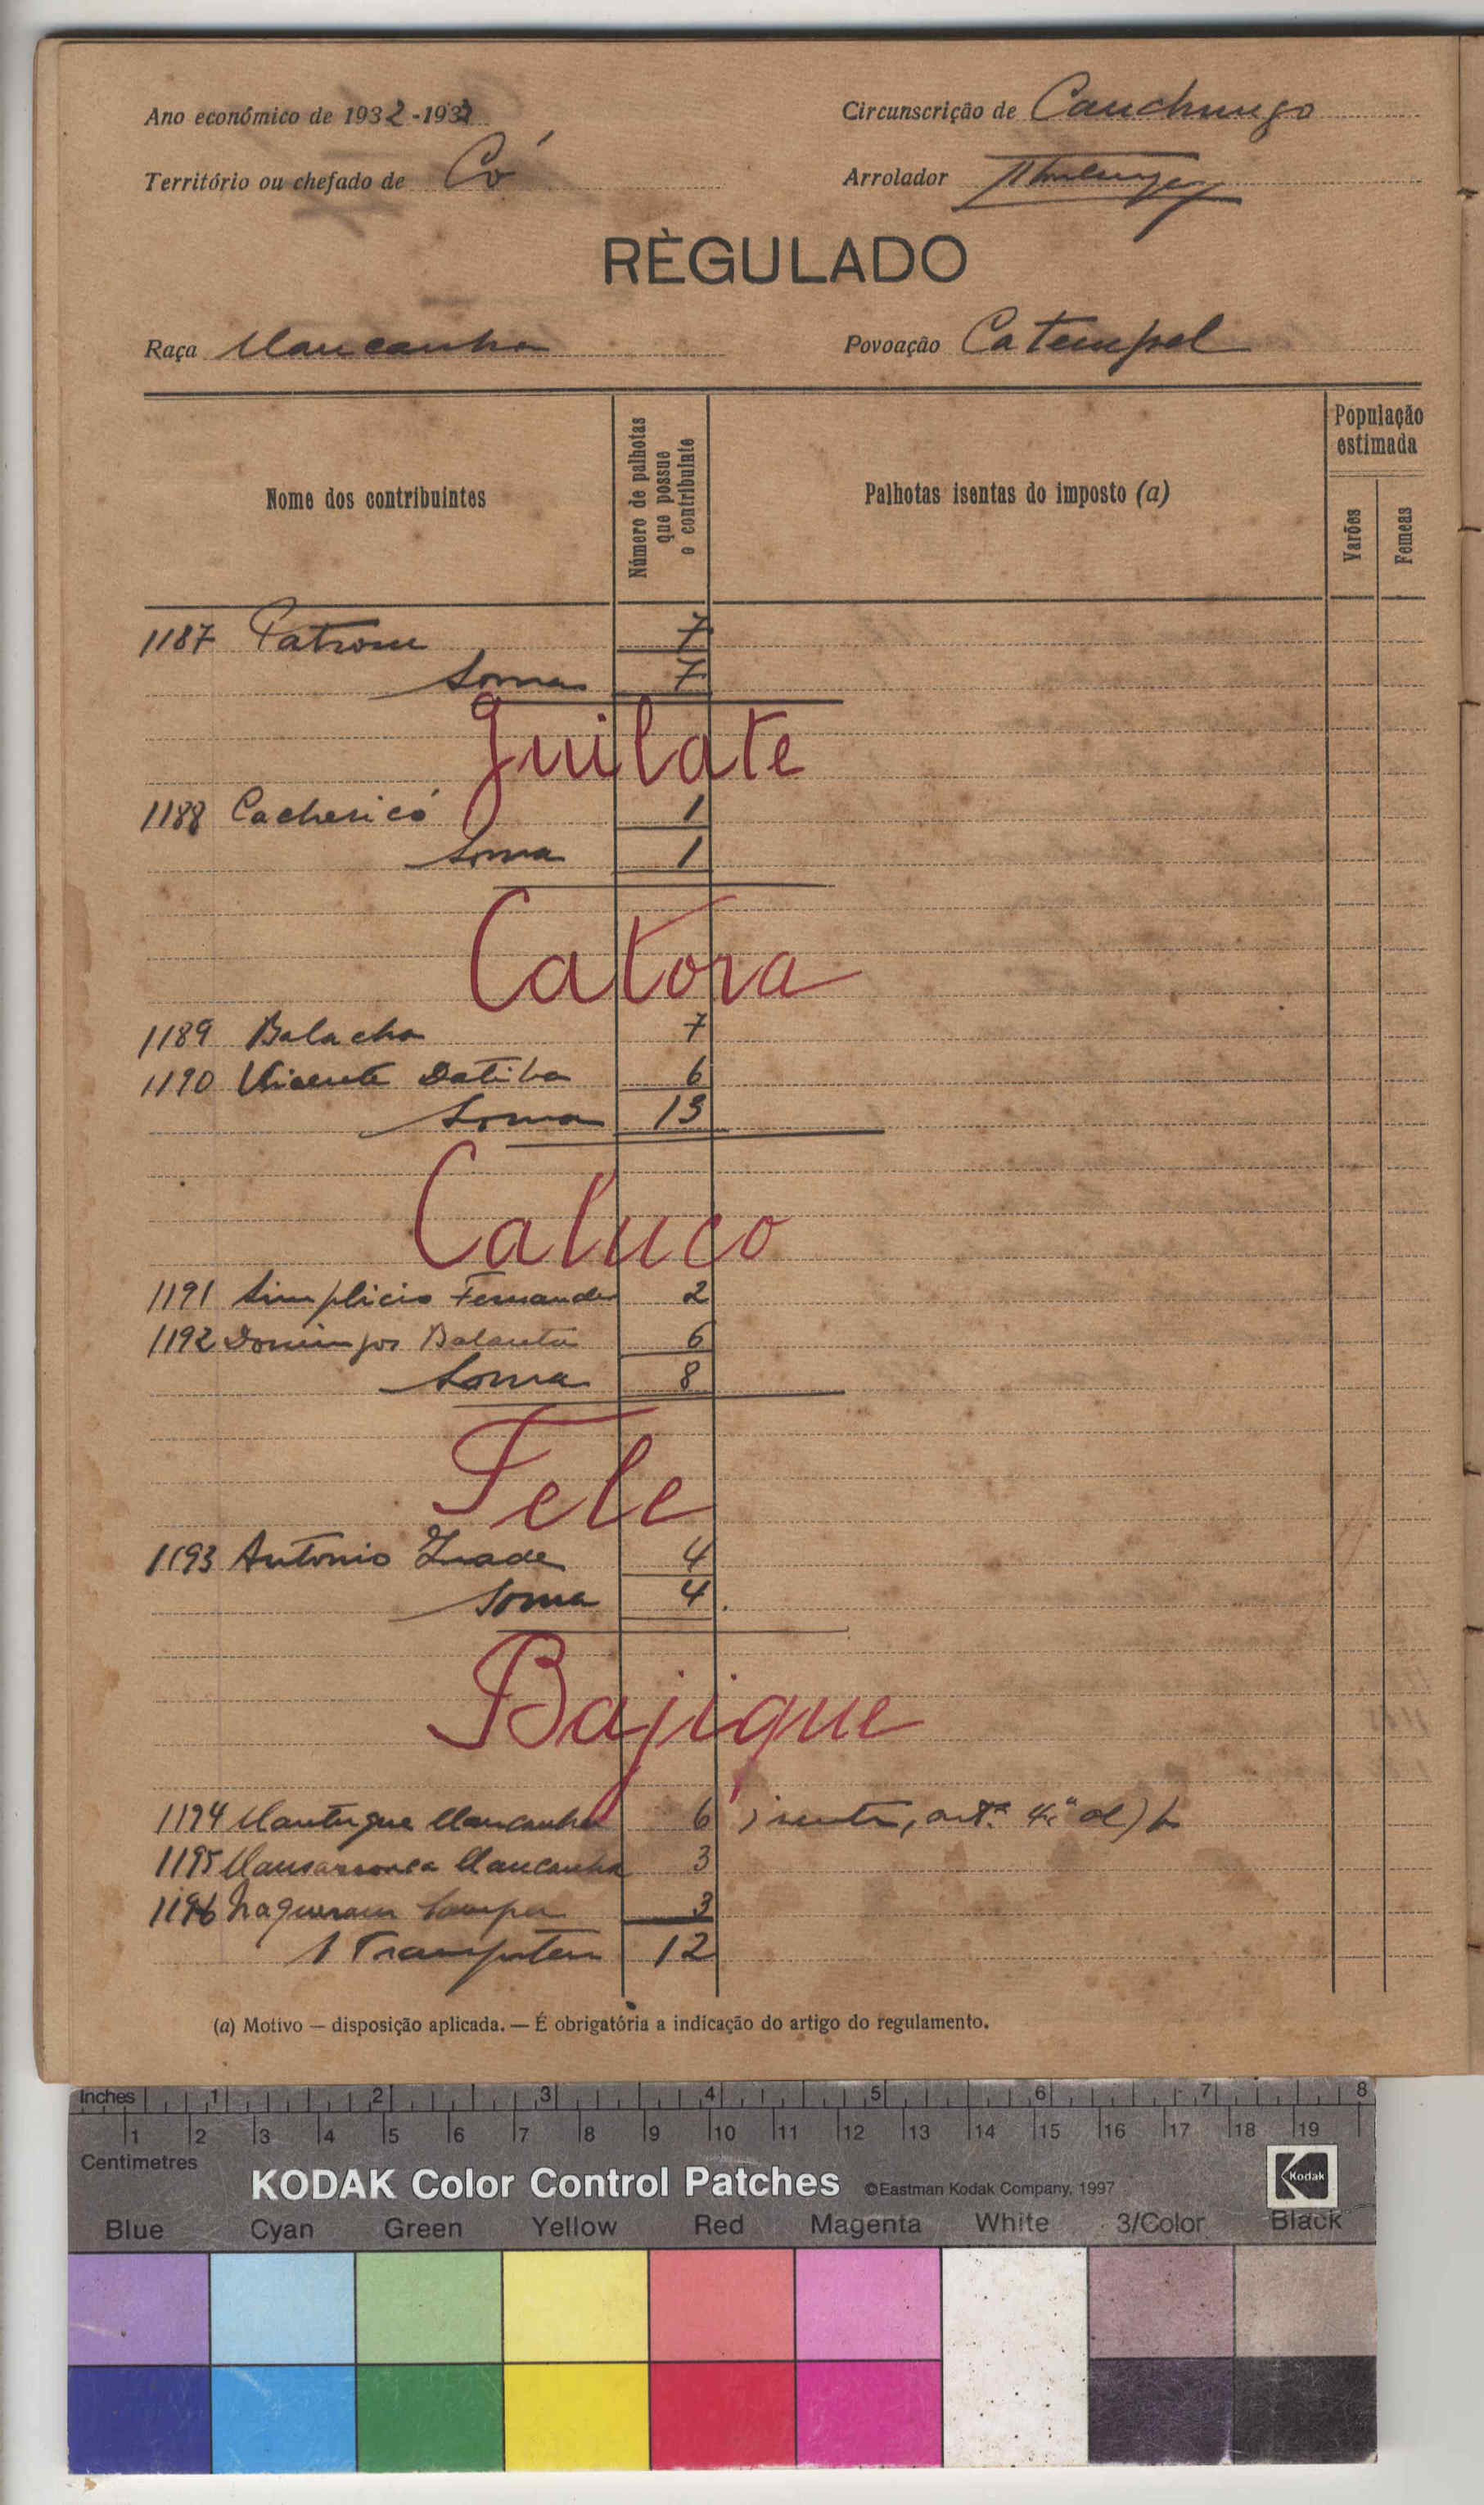 Ano económico de 1932-1933
Circunscrição de Canchungo
Território ou chefado de Có
Arrolador
RÈGULADO
Raça Mancanha
Povoação Catempel
Nome dos contribuintes
Número de palhotas que possue o contribuinte
Palhotas isentas do imposto (a)
População estimada
Varões
Femeas
1187 Patrone 7
Soma 7
Juilate
1188 Cachericó 1
Soma 1
Catora
1189 Balacha 7
1190 Vicente Datiba 6
Soma 13
Caluco
1191 Simplicio Fernandes 2
1192 Domingos Balanta 6
Soma 8
Tele
1193 Antonio 4
Soma 4
Bajique
1194 Mantigue Mancanha 6 isento, art.º 4.º
1195 Mancanha 3
1196 3
A Transportar 12
(a) Motivo — disposição aplicada. — É obrigatória a indicação do artigo do regulamento.
Inches 1 2 3 4 5 6 7 8
1 2 3 4 5 6 7 8 9 10 11 12 13 14 15 16 17 18 19
Centimetres
KODAK Color Control Patches ©Eastman Kodak Company, 1997 Kodak
Blue Cyan Green Yellow Red Magenta White 3/Color Black